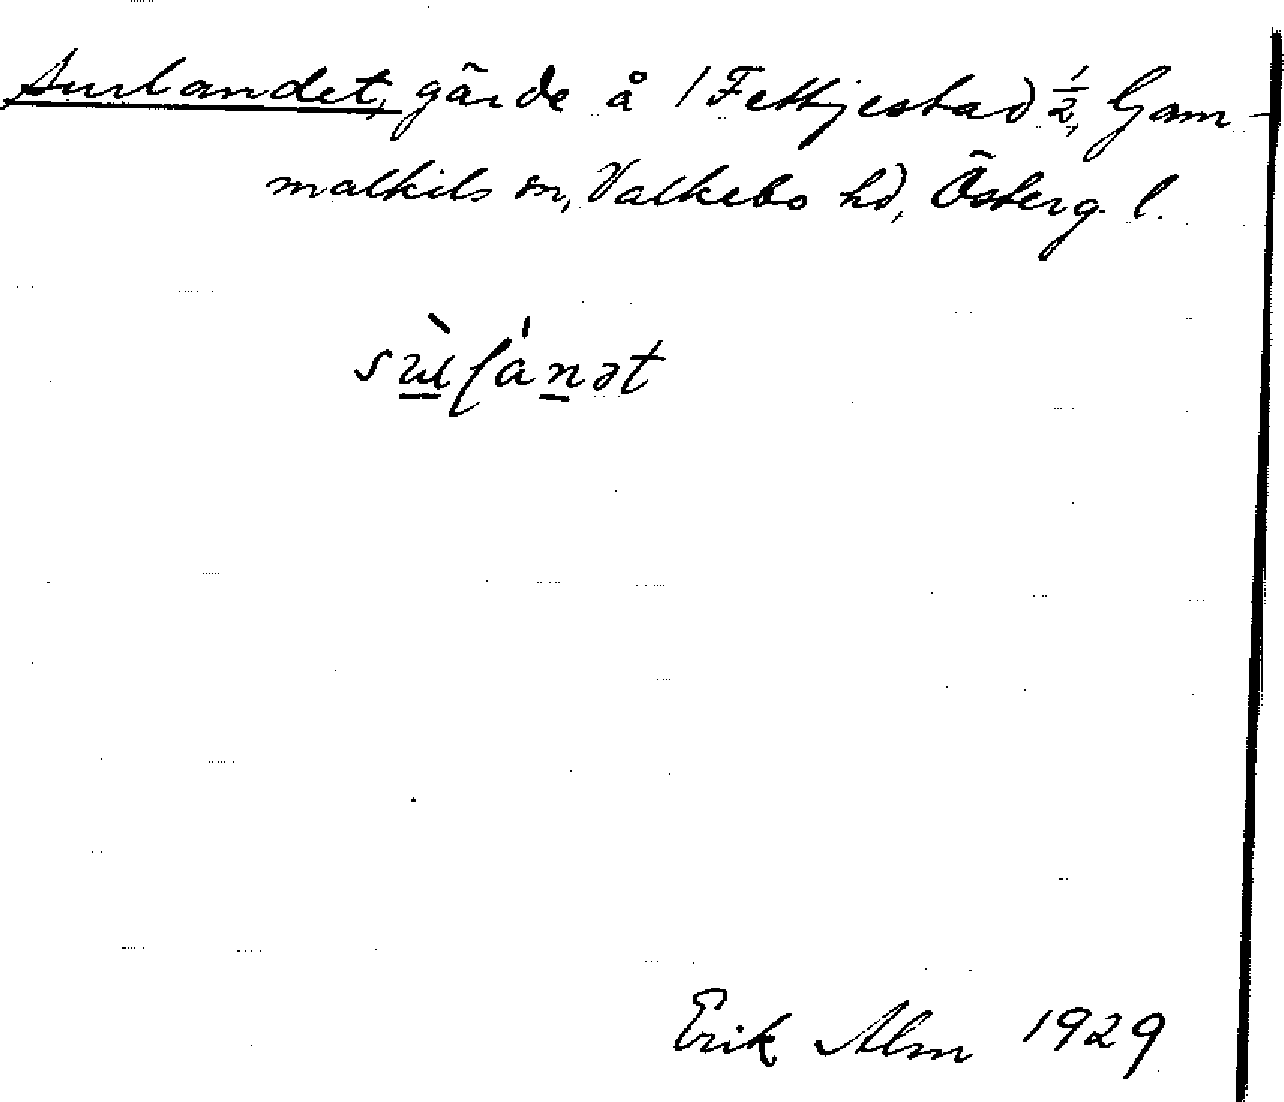 Surlandet, gärde å 1 Fettjestad 1/2, Gam-
malkils sn, Valkebo hd, Österg. l.
sùlánət
Erik Alm 1929